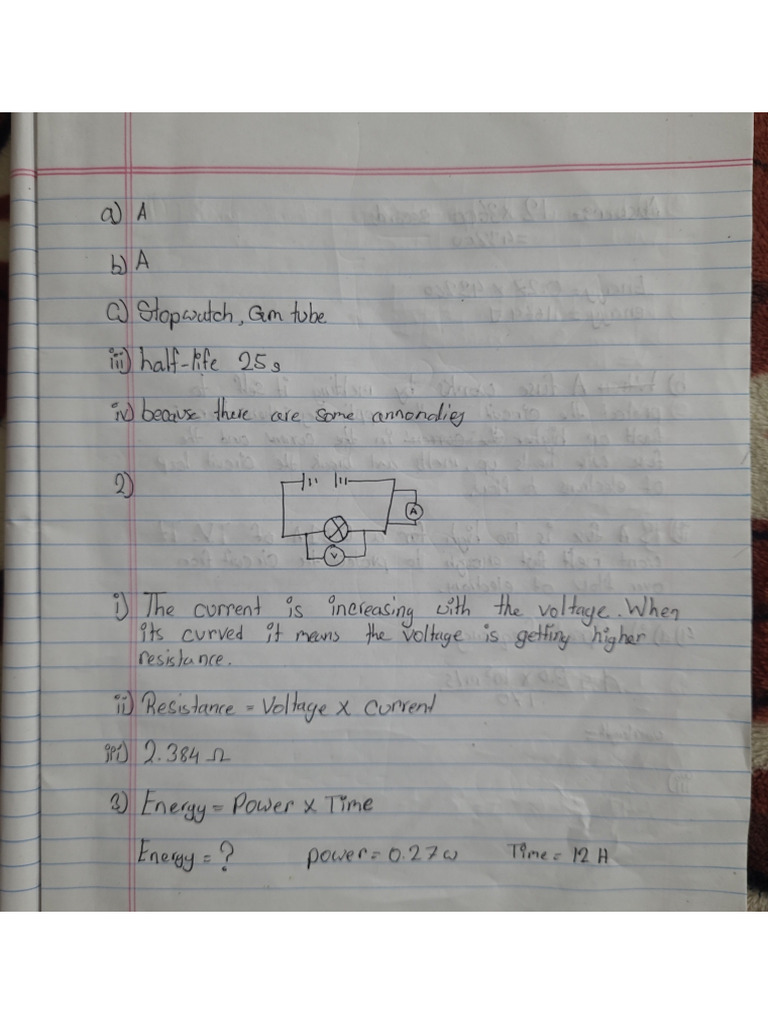 a) A
b) A
c) Stopwatch, Gm tube
iii) half-life 25s
iv) because there are some annomalies
2)
A
V
i) The current is increasing with the voltage. When
its curved it means the voltage is getting higher
resistance.
ii) Resistance = Voltage x current
iii) 2.384 Ω
3) Energy = Power x Time
Energy = ? power = 0.27w Time = 12 H